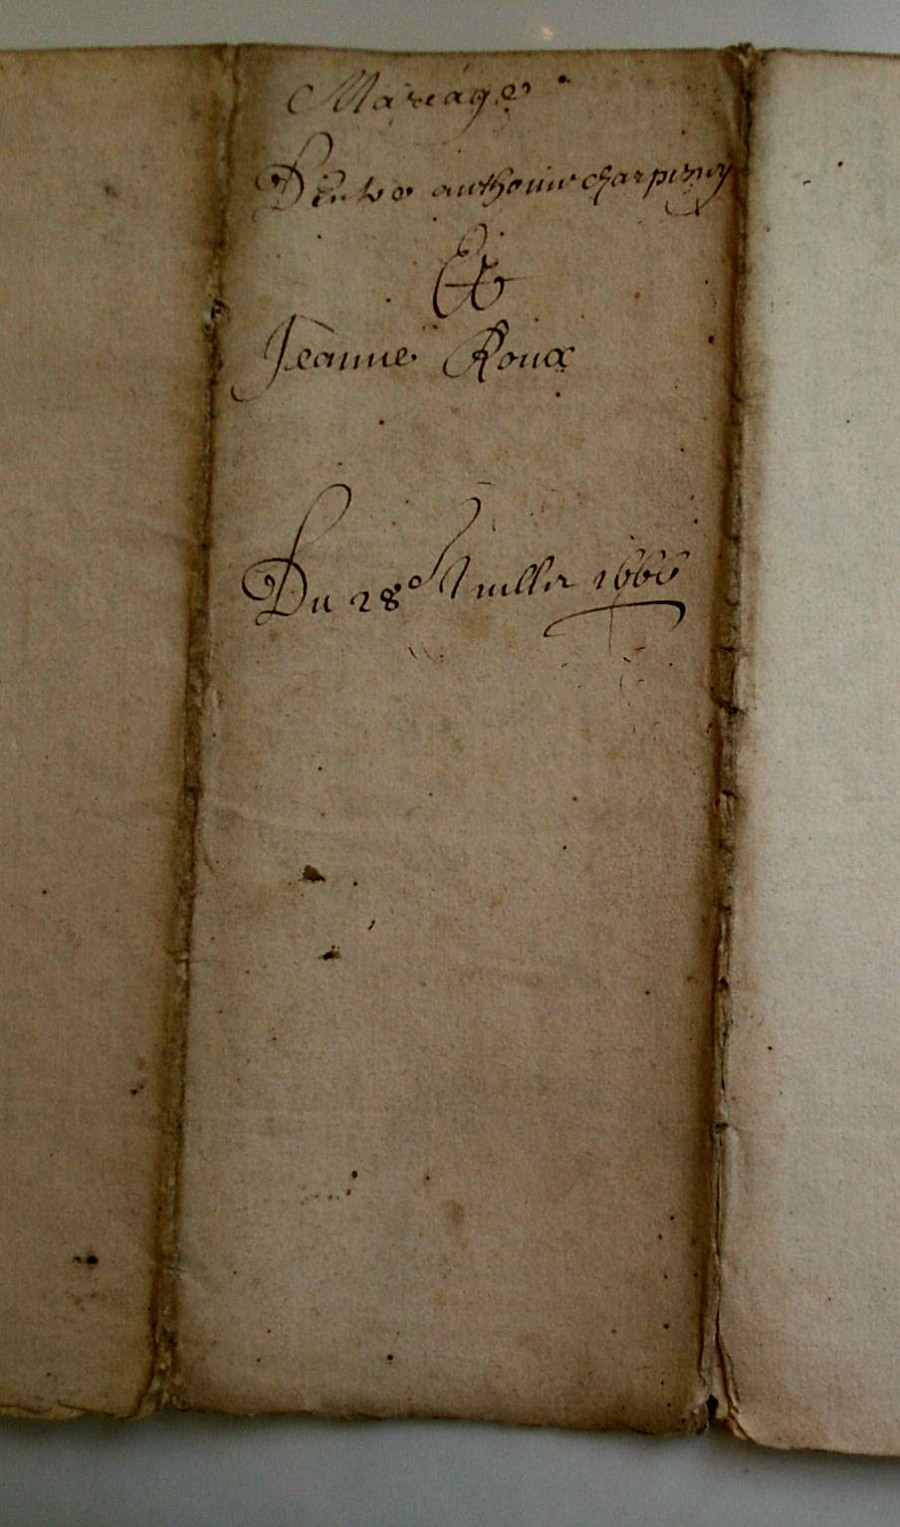 Mariage
D'entre anthoine charpenay
Et
Jeanne Roux
Du 28e Juillet 1666